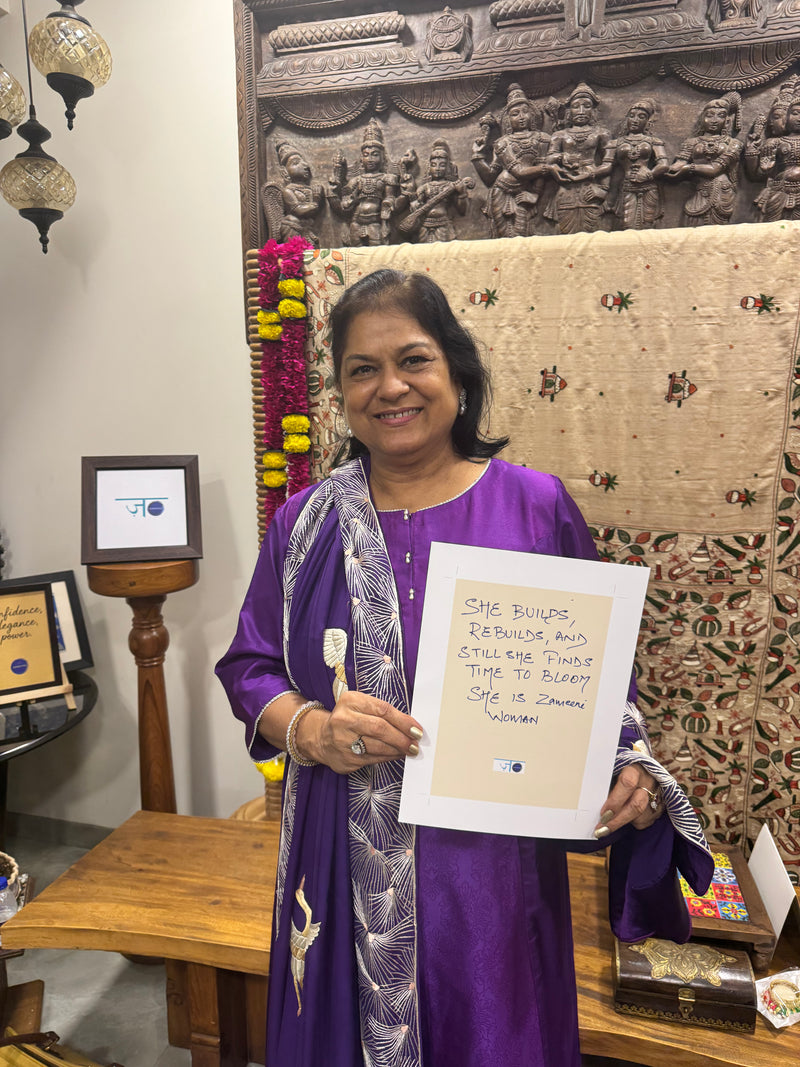 ज़
onfidence,
legance,
power.
SHE BUILDS,
REBUILDS, AND
STILL SHE FINDS
TIME TO BLOOM
SHE IS Zameeni
WOMAN
ज़